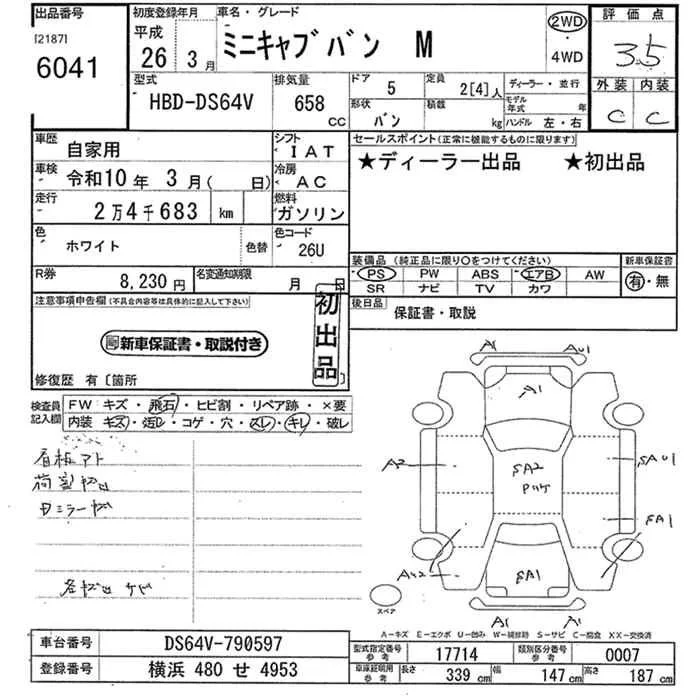 出品番号
[2187]
6041
初度登録年月
平成
26 年 3 月
車名・グレード
ミニキャブバン M
2WD
4WD
評価点
3.5
外装 内装
C C
型式
HBD-DS64V
排気量
658 CC
ドア
5
定員
2[4]人
形状
バン
積載
kg
ディーラー・並行
モデル年式 年
ハンドル 左・右
車歴
自家用
シフト
IAT
車検
令和10年 3月( 日)
冷房
AC
走行
2万4千683 km
燃料
ガソリン
色
ホワイト
色替
色コード
26U
セールスポイント(正常に機能するものに限ります)
★ディーラー出品 ★初出品
R券
8,230円
名変通知期限
月 日
装備品(純正品に限り○をつけてください)
PS PW ABS エアB AW
SR ナビ TV カワ
新車保証書
有・無
注意事項申告欄(不具合内容等は具体的に記入して下さい)
新車保証書・取説付き
初出品
修復歴 有〔箇所 〕
後日品
保証書・取説
検査員記入欄
FW キズ・飛石・ヒビ割・リペア跡・×要
内装 キズ・汚レ・コゲ・穴・スレ・キレ・破レ
看板アト
A1 AU1
A1
A2
SA2
SAU1
SA1
AU2
SA1
A1 A1
スペア
A-キズ E-エクボ U-凹み W-補修跡 S-サビ C-腐食 XX-交換済
車台番号
DS64V-790597
登録番号
横浜 480 せ 4953
型式指定番号
参考
17714
類別区分番号
参考
0007
車庫証明用
参考
長さ 339 cm 幅 147 cm 高さ 187 cm